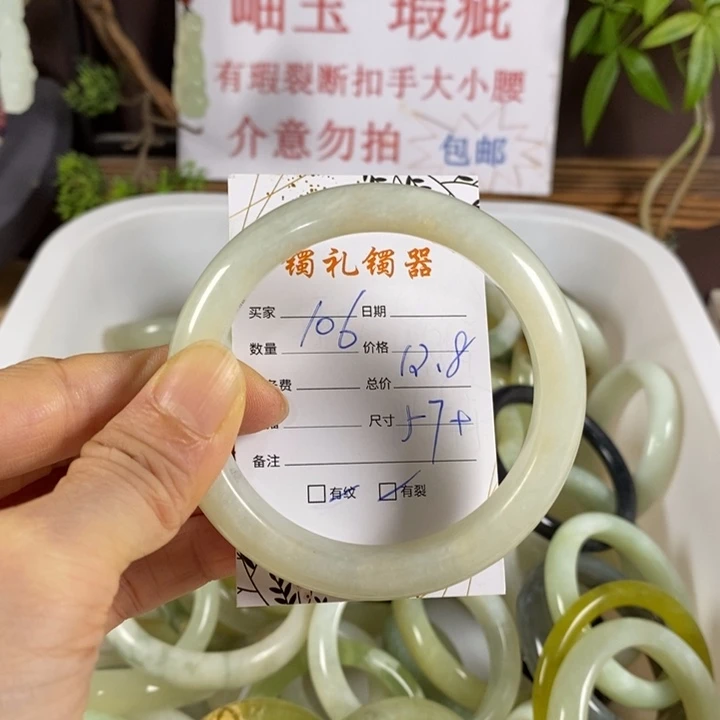 岫玉 瑕疵
有瑕裂断扣手大小腰
介意勿拍 包邮
镯礼镯器
买家 106 日期
数量 价格 12.8
费 总价
尺寸 57+
备注
□有纹 □有裂